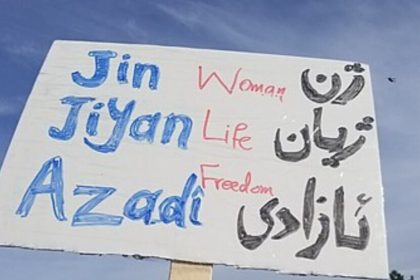 Jin Woman ژن
Jiyan Life ژیان
Azadi Freedom ئازادی